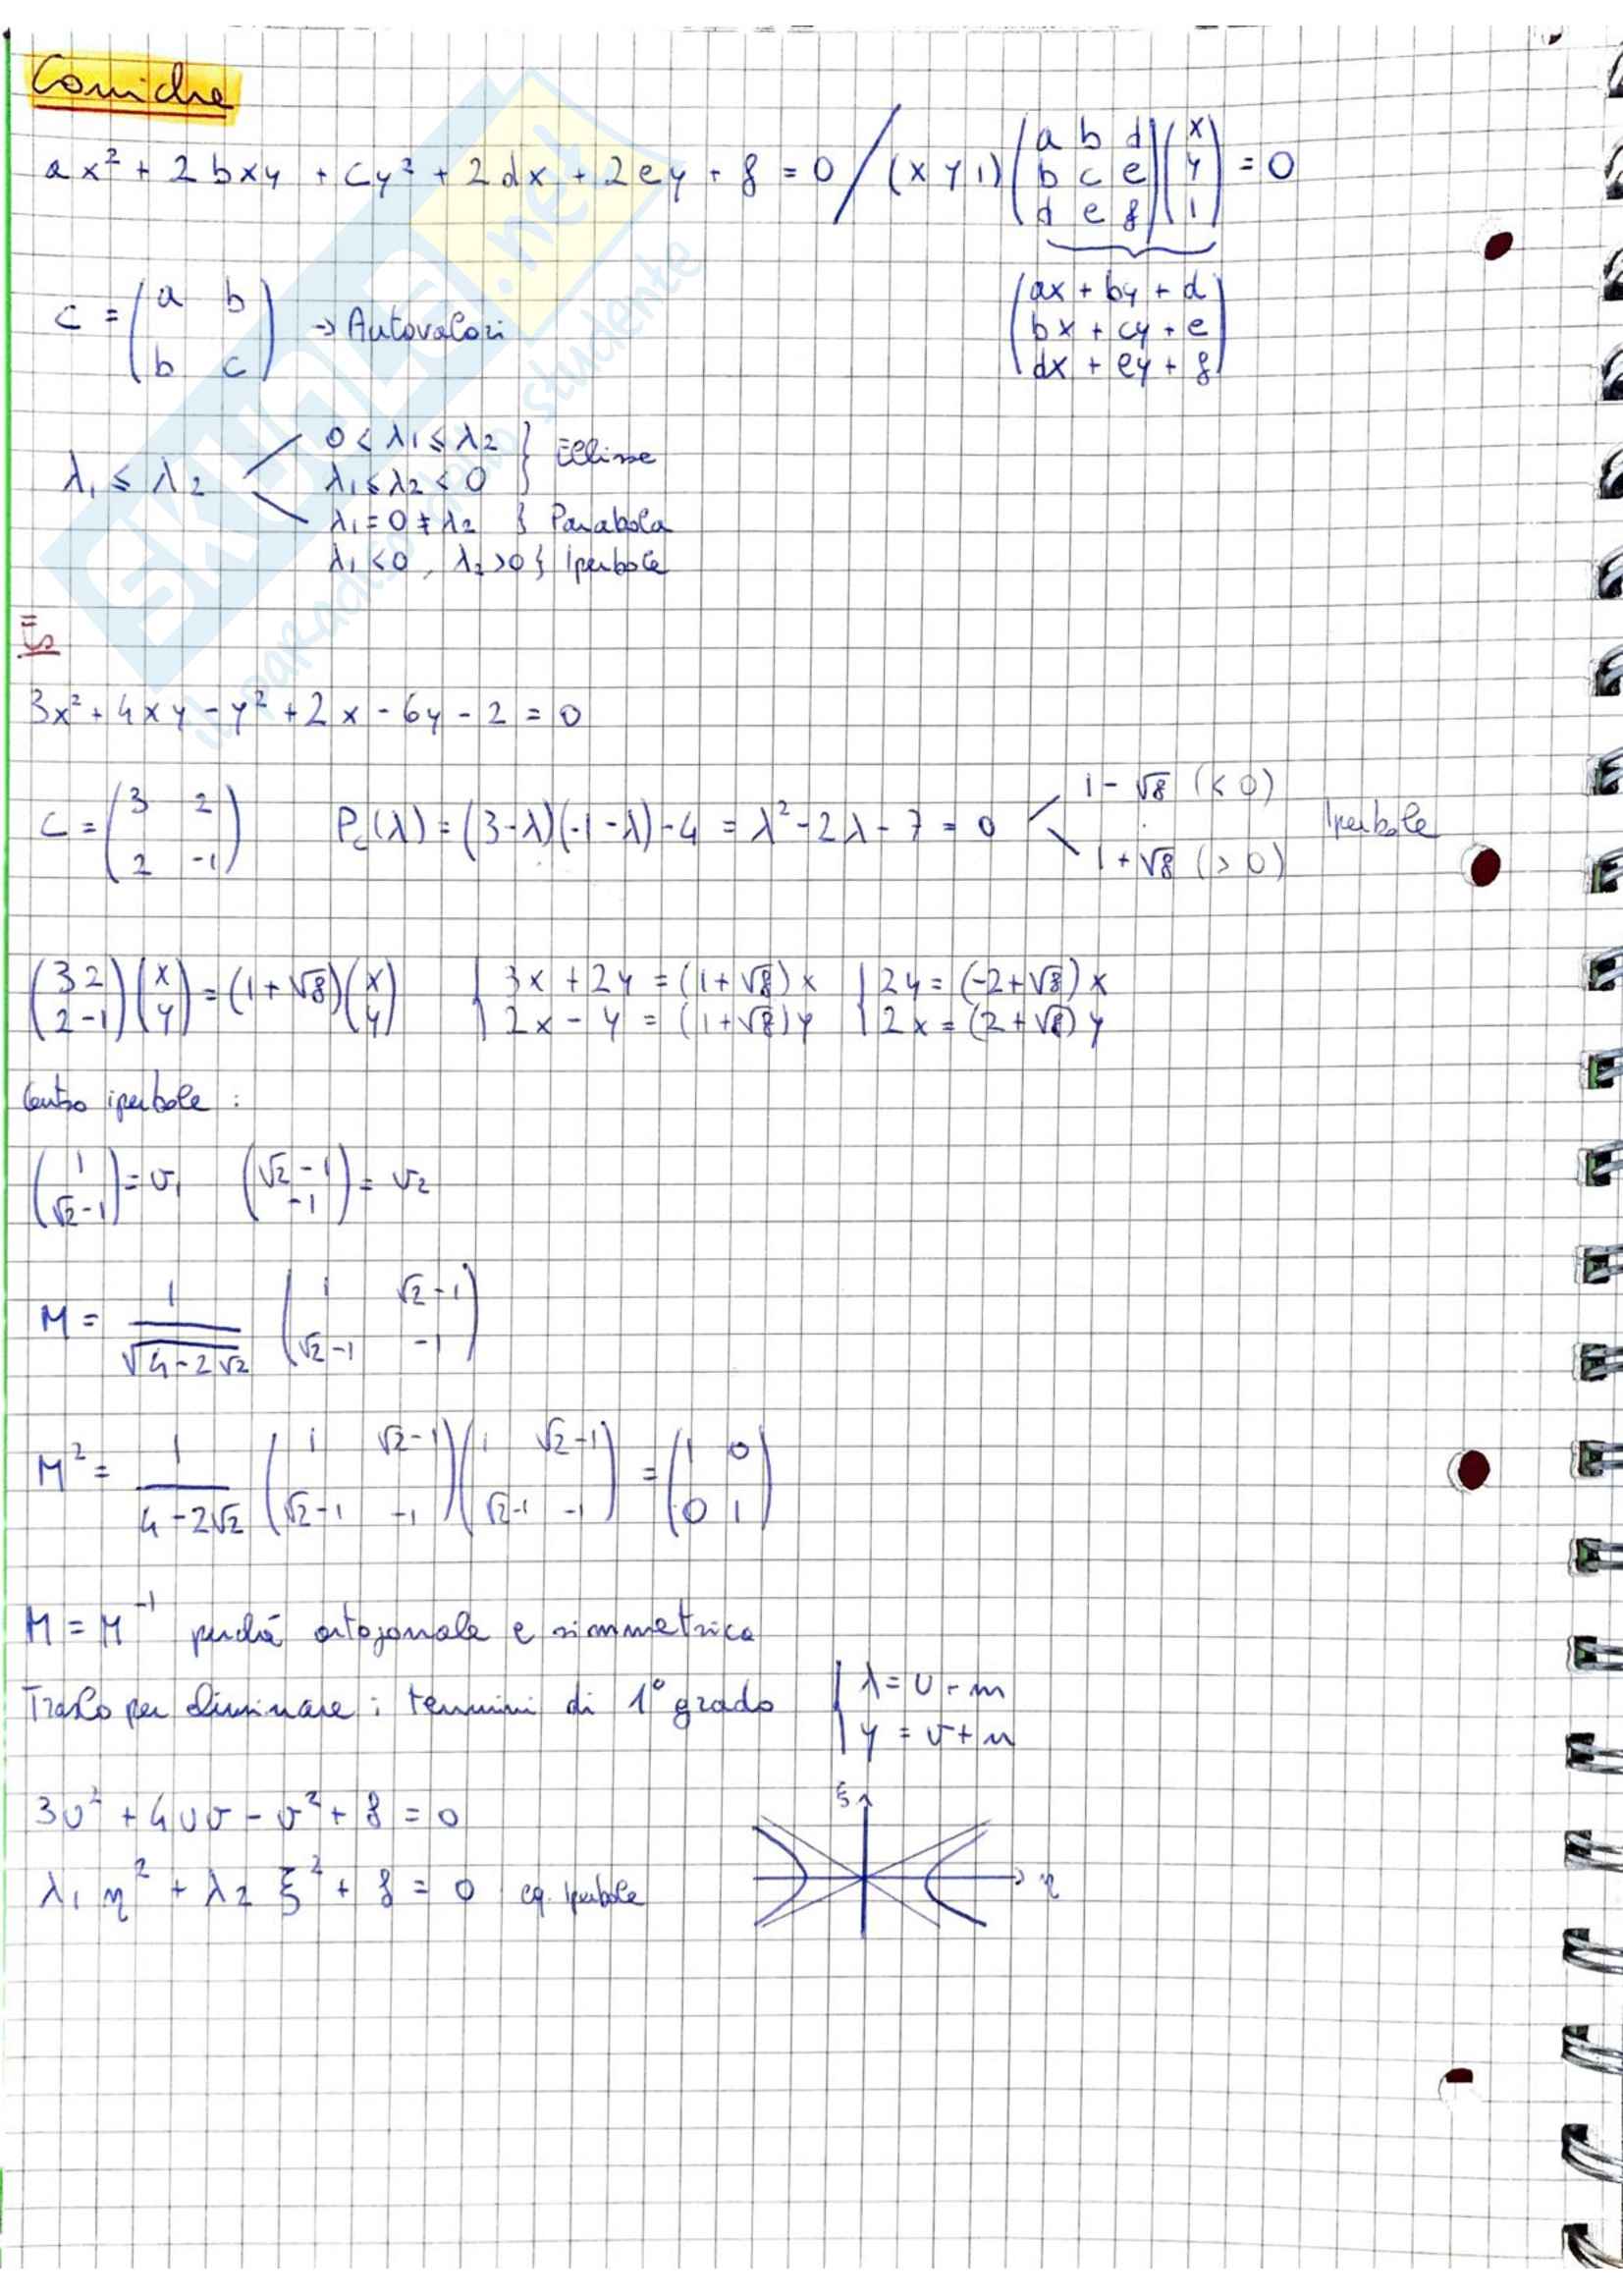 Coniche
ax² + 2bxy + cy² + 2dx + 2ey + f = 0 / (x y 1) (a b d / b c e / d e f) (x / y / 1) = 0
(ax + by + d / bx + cy + e / dx + ey + f)
C = (a b / b c) → Autovalori
λ₁ ≤ λ₂
0 < λ₁ ≤ λ₂
λ₁ ≤ λ₂ < 0 } Ellisse
λ₁ = 0 ≠ λ₂ } Parabola
λ₁ < 0, λ₂ > 0 } Iperbole
Es
3x² + 4xy - y² + 2x - 6y - 2 = 0
C = (3 2 / 2 -1) P_c(λ) = (3-λ)(-1-λ)-4 = λ² - 2λ - 7 = 0
1 - √8 (< 0)
1 + √8 (> 0)
Iperbole
(3 2 / 2 -1) (x / y) = (1 + √8) (x / y) { 3x + 2y = (1+√8)x / 2x - y = (1+√8)y { 2y = (-2+√8)x / 2x = (2+√8)y
Centro iperbole :
(1 / √2-1) = v₁ (√2-1 / -1) = v₂
M = 1/√(4-2√2) (1 √2-1 / √2-1 -1)
M² = 1/(4-2√2) (1 √2-1 / √2-1 -1) (1 √2-1 / √2-1 -1) = (1 0 / 0 1)
M = M⁻¹ perché ortogonale e simmetrica
Traslo per eliminare i termini di 1° grado { λ = u - m / y = v + n
3u² + 4uv - v² + f = 0
λ₁ η² + λ₂ ξ² + f = 0 eq. iperbole
ξ
η
SKUOLA.net
il paradiso dello studente